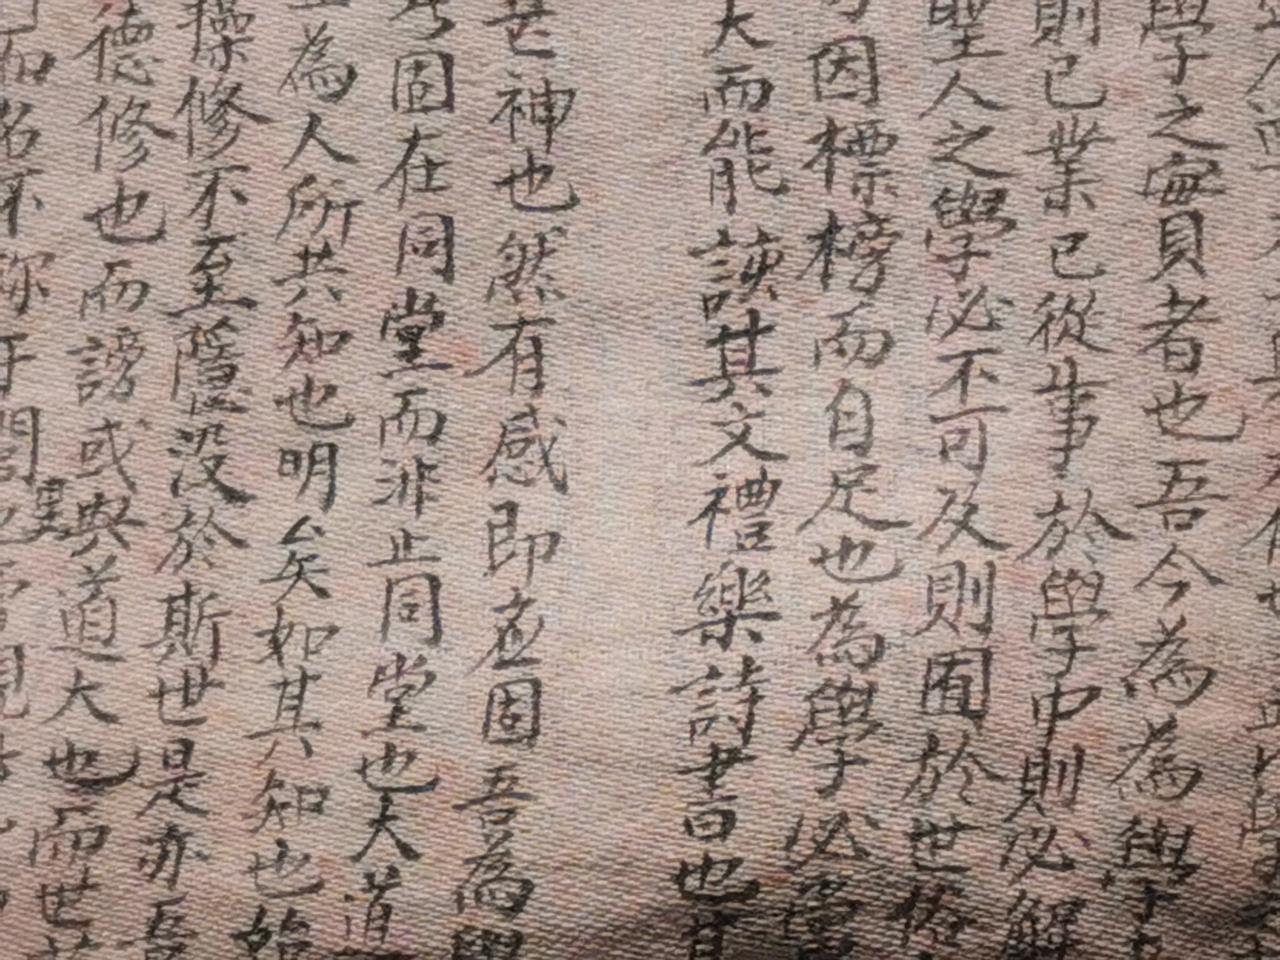 學之實者也吾今為為學
則已業已從事於學中則必解
聖人之學必不可及則囿於世俗
因標榜而自足也為學必當
大而能讀其文禮樂詩書也
甚神也然有感即應固吾為學
固在同堂而非止同堂也大道
為人所共知也明矣如其知也始
操修不至隱沒於斯世是亦吾
德修也而謗或與道大也而世
而名不称于